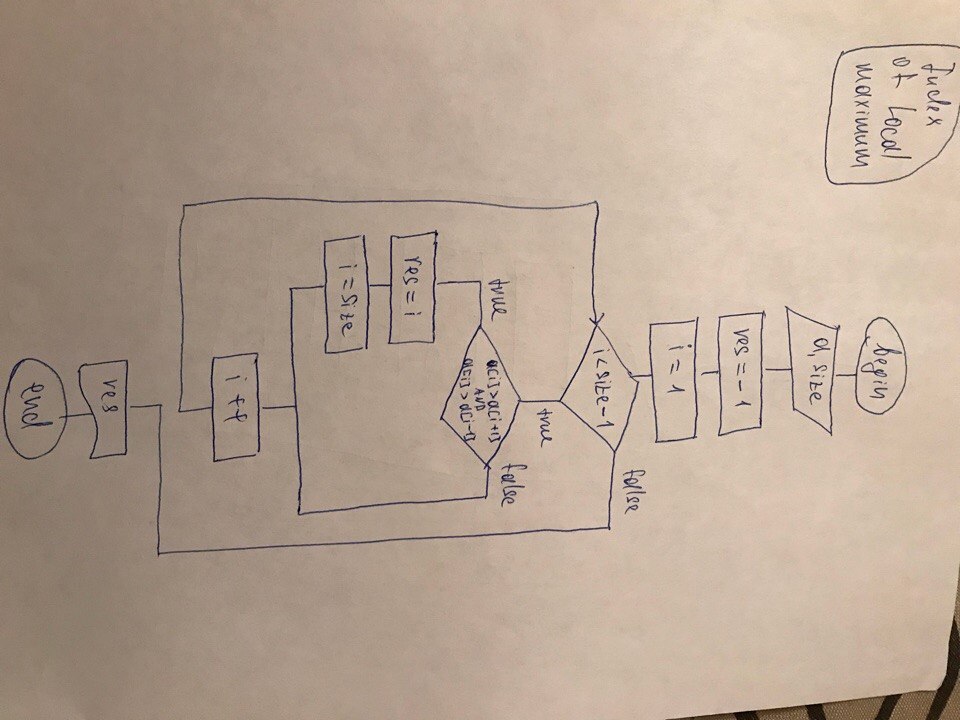 Index
of Local
maximum
begin
a, size
res = -1
i = 1
i < size-1
false
true
true
false
a[i] > a[i+1]
AND
a[i] > a[i-1]
res = i
i = size
i ++
res
end